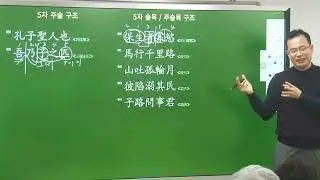 5자 주술 구조
孔子聖人也
吾乃 子之
5자 술목 / 주술목 구조
生
馬行千里路
山吐孤輪月
彼陷溺其民
子路問事君